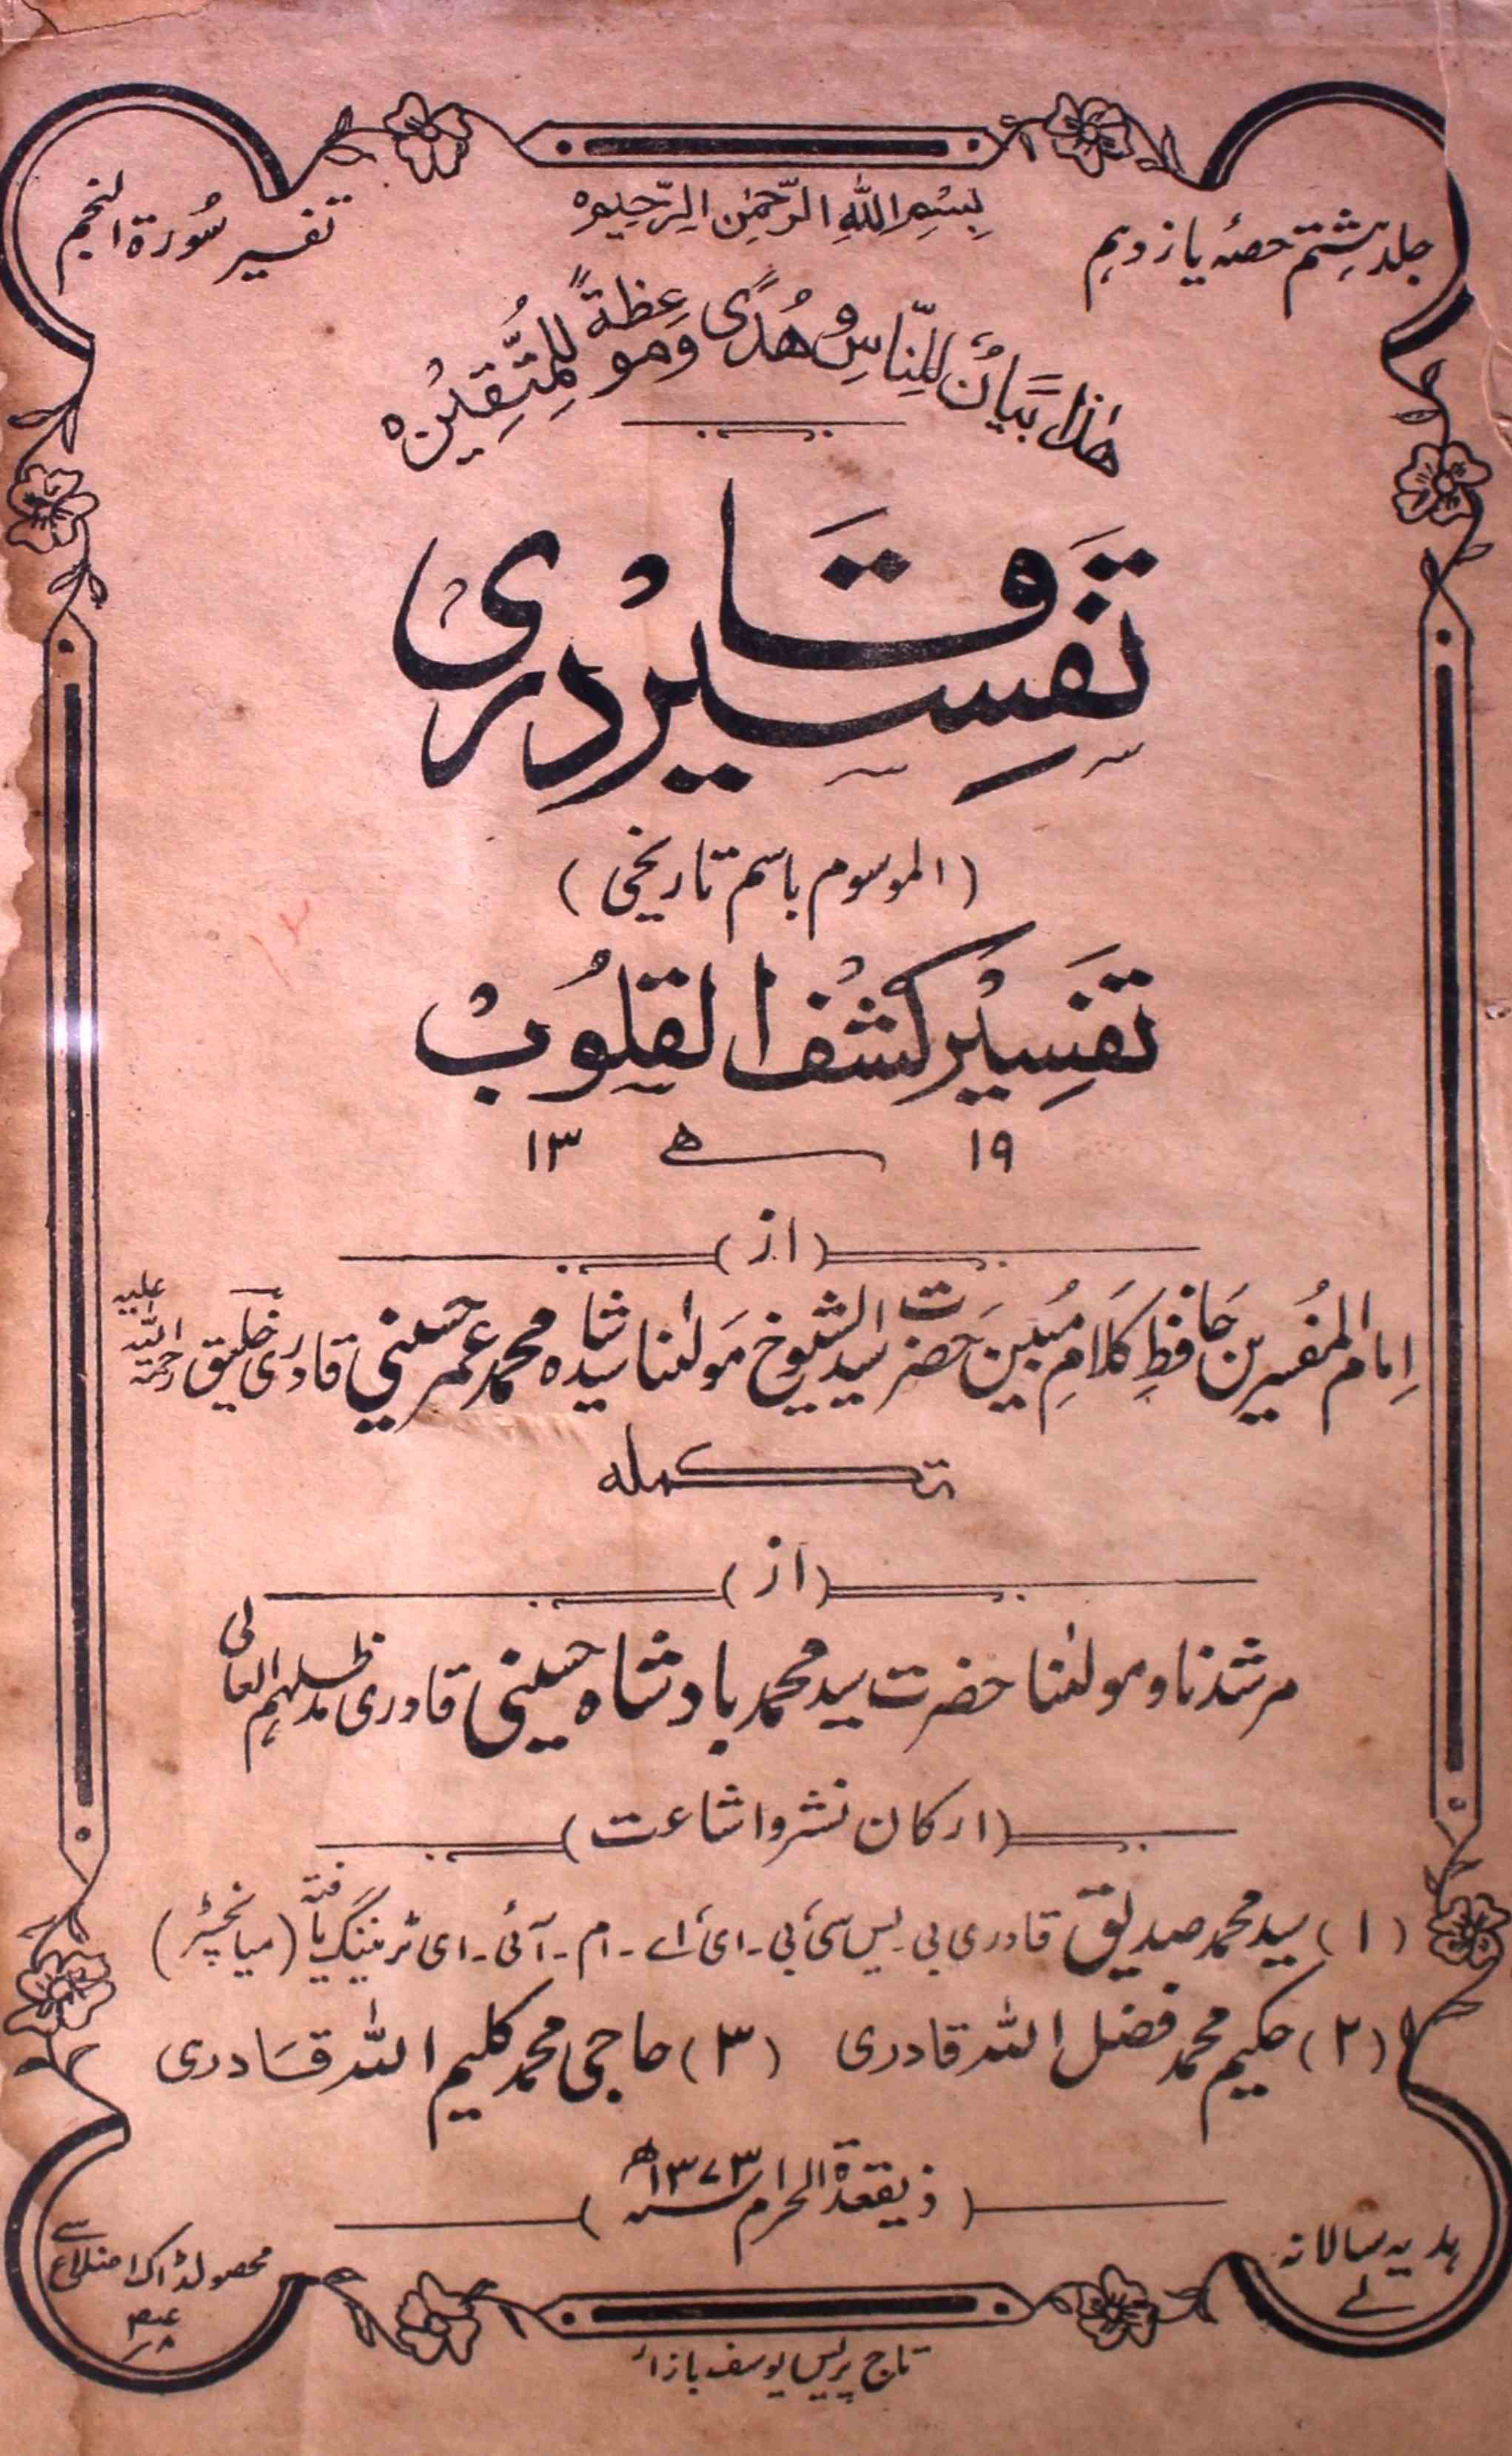 جلد ہشتم حصۂ یازدہم
بِسْمِ اللهِ الرَّحْمٰنِ الرَّحِيْمِ ہ
تفسیر سُورۃ النجم
هٰذَا بَيَانٌ لِّلنَّاسِ وَهُدًى وَّمَوْعِظَةٌ لِّلْمُتَّقِيْنَ ہ
تَفسِیْر قَادری
(الموسوم باسم تاریخی)
تَفسِیْر کَشْفُ القلُوبْ
۱۹ ھ ۱۳
(از)
اِمام المفُسرین حَافظِ کَلامِ مُبین حَضرت سید الشیوخ مَولٰنا سید شاہ محمد عمر حسینی قادری خلیق رحمۃ اللہ علیہ
تکملہ
(از)
مرشدنا و مولٰنا حضرت سید محمد بادشاہ حسینی قادری مدظلہم العالی
(ارکان نشر و اشاعت)
(۱) سید محمد صدیق قادری بی۔یس سی ئی۔ای ئ اے۔ام۔آئی۔ای ٹریننگ یافتہ (میانچیٹر)
(۲) حکیم محمد فضل اللہ قادری (۳) حاجی محمد کلیم اللہ قَادری
(ذیقعدۃ الحرام سنہ ۱۳۷۳ھ)
ہدیہ سالانہ
محصولڈاک اضلاع سے
تاج پریس یوسف بازار